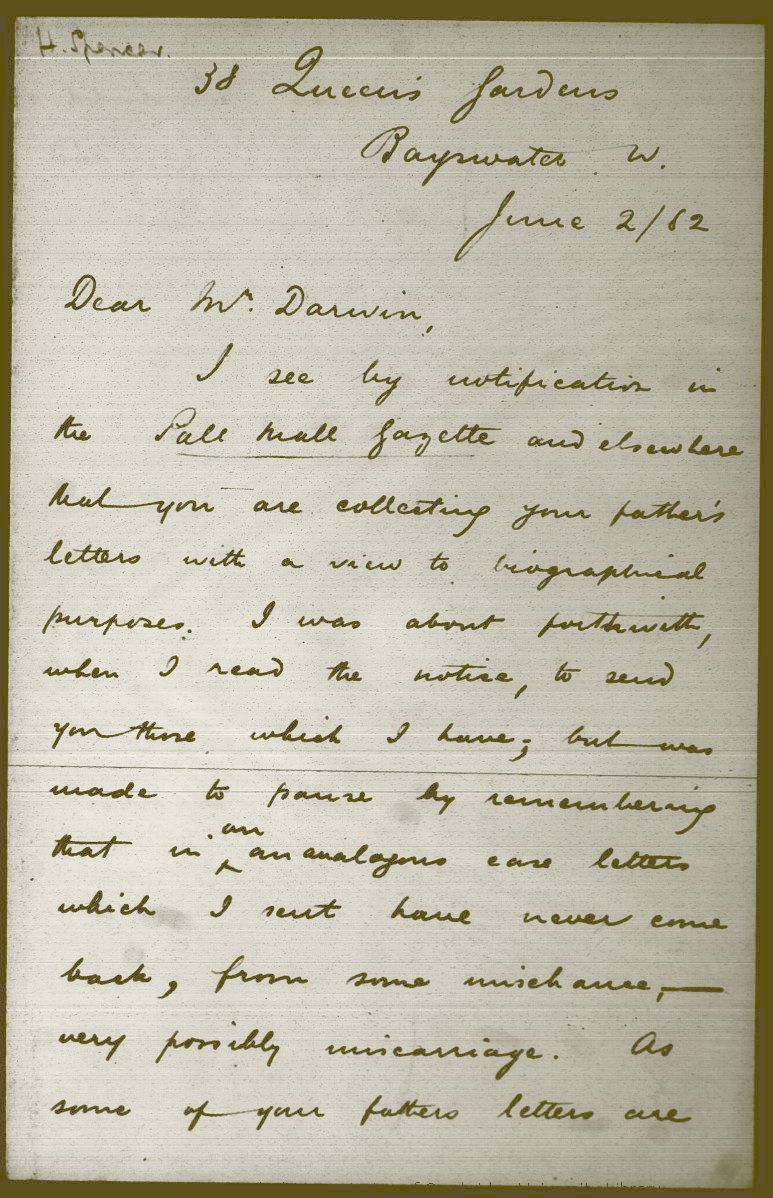 H. Spencer.
38 Queen's Gardens
Bayswater. W.
June 2/82
Dear Mr. Darwin,
I see by notification in
the Pall Mall Gazette and elsewhere
that you are collecting your father's
letters with a view to biographical
purposes. I was about forthwith,
when I read the notice, to send
you those which I have; but was
made to pause by remembering
an
that in an analogous case letters
which I sent have never come
back, from some mischance,—
very possibly miscarriage. As
some of your fathers letters are